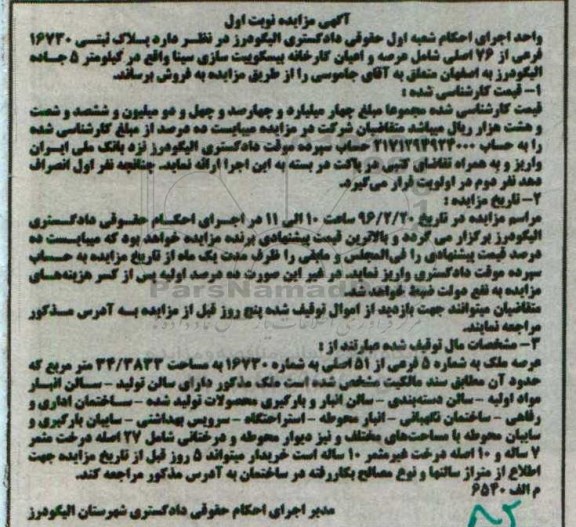 آگهی مزایده نوبت اول
واحد اجرای احکام شعبه اول حقوقی دادگستری الیگودرز در نظر دارد پلاک ثبتی ۱۶۷۳۰
فرعی از ۷۶ اصلی شامل عرصه و اعیان کارخانه بیسکوییت سازی سینا واقع در کیلومتر ۵ جاده
الیگودرز به اصفهان متعلق به آقای جاموسی را از طریق مزایده به فروش برساند.
۱- قیمت کارشناسی شده :
قیمت کارشناسی شده مجموعا مبلغ چهار میلیارد و چهارصد و چهل و دو میلیون و ششصد و شصت
و هشت هزار ریال میباشد متقاضیان شرکت در مزایده میبایست ده درصد از مبلغ کارشناسی شده
را به حساب ۲۱۷۱۲۹۴۹۲۳۰۰۰ حساب سپرده موقت دادگستری الیگودرز نزد بانک ملی ایران
واریز و به همراه تقاضای کتبی در پاکت در بسته به این اجرا ارائه نماید. چنانچه نفر اول انصراف
دهد نفر دوم در اولویت قرار می‌گیرد.
۲- تاریخ مزایده :
مراسم مزایده در تاریخ ۹۶/۲/۲۰ ساعت ۱۰ الی ۱۱ در اجرای احکام حقوقی دادگستری
الیگودرز برگزار می گردد و بالاترین قیمت پیشنهادی برنده مزایده خواهد بود که میبایست ده
درصد قیمت پیشنهادی را فی‌المجلس و مابقی را ظرف مدت یک ماه از تاریخ مزایده به حساب
سپرده موقت دادگستری واریز نماید. در غیر این صورت ده درصد اولیه پس از کسر هزینه‌های
مزایده به نفع دولت ضبط خواهد شد.
متقاضیان میتوانند جهت بازدید از اموال توقیف شده پنج روز قبل از مزایده به آدرس مذکور
مراجعه نمایند.
۳- مشخصات مال توقیف شده عبارتند از :
عرصه ملک به شماره ۵ فرعی از ۵۱ اصلی به شماره ۱۶۷۳۰ به مساحت ۳۴/۳۸۳۳ متر مربع که
حدود آن مطابق سند مالکیت مشخص شده است ملک مذکور دارای سالن تولید - سالن انبار
مواد اولیه - سالن دسته‌بندی - سالن انبار و بارگیری محصولات تولید شده - ساختمان اداری و
رفاهی - ساختمان نگهبانی - انبار محوطه - استراحتگاه - سرویس بهداشتی - سایبان بارگیری و
سایبان محوطه با مساحت‌های مختلف و نیز دیوار محوطه و درختانی شامل ۲۷ اصله درخت مثمر
۷ ساله و ۱۰ اصله درخت غیرمثمر ۱۰ ساله است خریدار میتواند ۵ روز قبل از تاریخ مزایده جهت
اطلاع از متراژ سالنها و نوع مصالح بکاررفته در ساختمان به آدرس مذکور مراجعه کند.
م الف ۶۵۴۰
مدیر اجرای احکام حقوقی دادگستری شهرستان الیگودرز